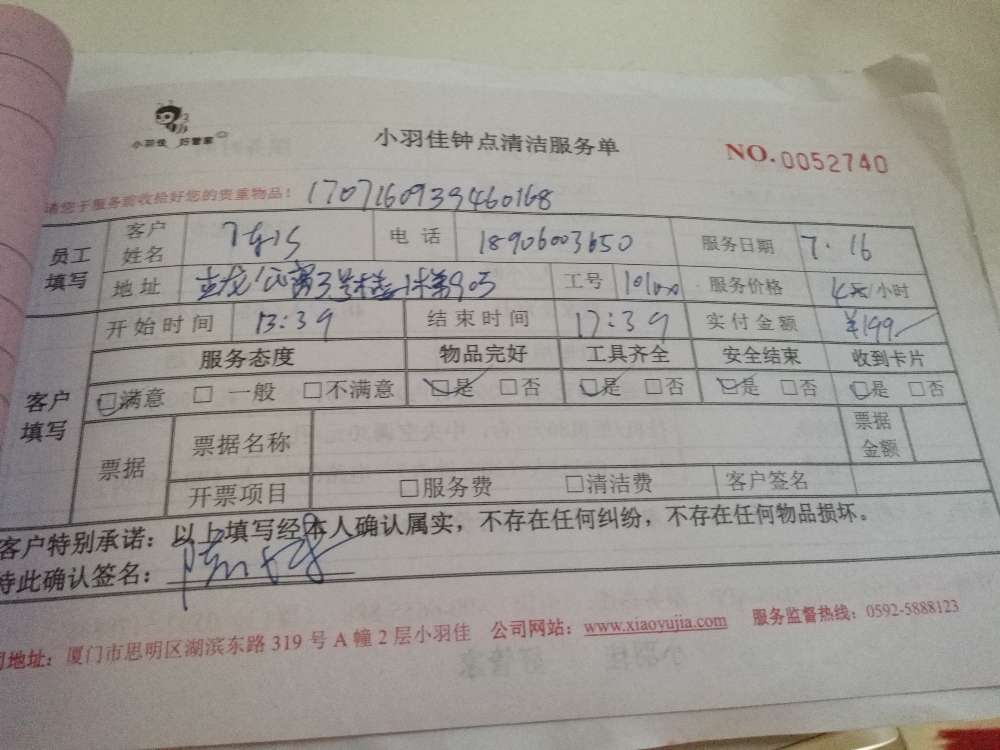 小羽佳 好管家
小羽佳钟点清洁服务单
NO.0052740
请您于服务前收拾好您的贵重物品! 1707160939460168
员工填写 客户姓名 电话 18906003650 服务日期 7.16
地址 工号 服务价格 /小时
开始时间 13:39 结束时间 17:39 实付金额 ¥199
客户填写 服务态度 物品完好 工具齐全 安全结束 收到卡片
□满意 □一般 □不满意 □是 □否 □是 □否 □是 □否 □是 □否
票据 票据名称 票据金额
开票项目 □服务费 □清洁费 客户签名
客户特别承诺：以上填写经本人确认属实，不存在任何纠纷，不存在任何物品损坏。
特此确认签名：
地址：厦门市思明区湖滨东路 319 号 A 幢 2 层小羽佳 公司网站：www.xiaoyujia.com 服务监督热线：0592-5888123